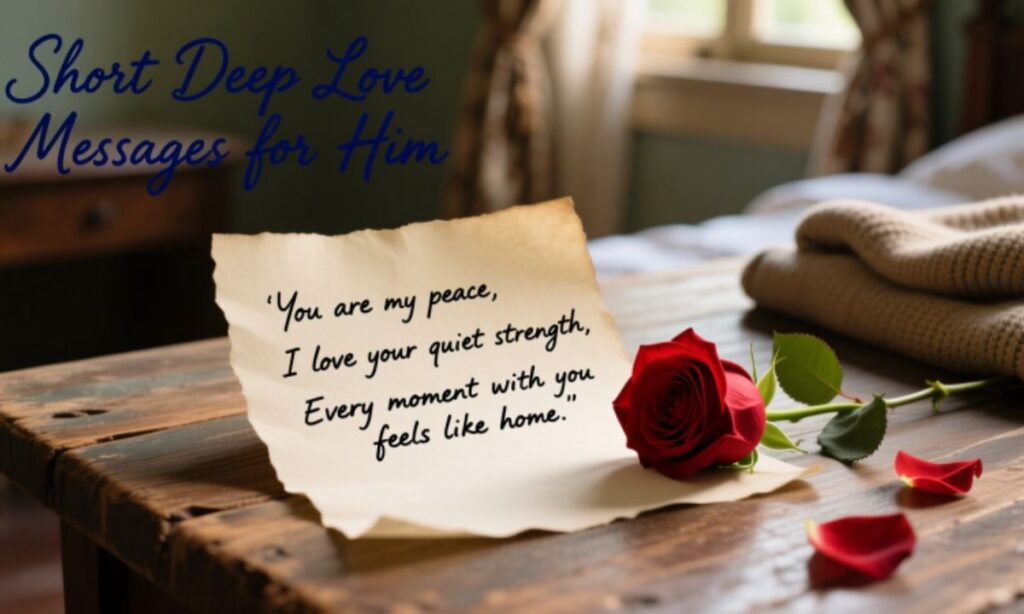 Short Deep Love
Messages for Him
‘You are my peace,
I love your quiet strength,
Every moment with you
feels like home."